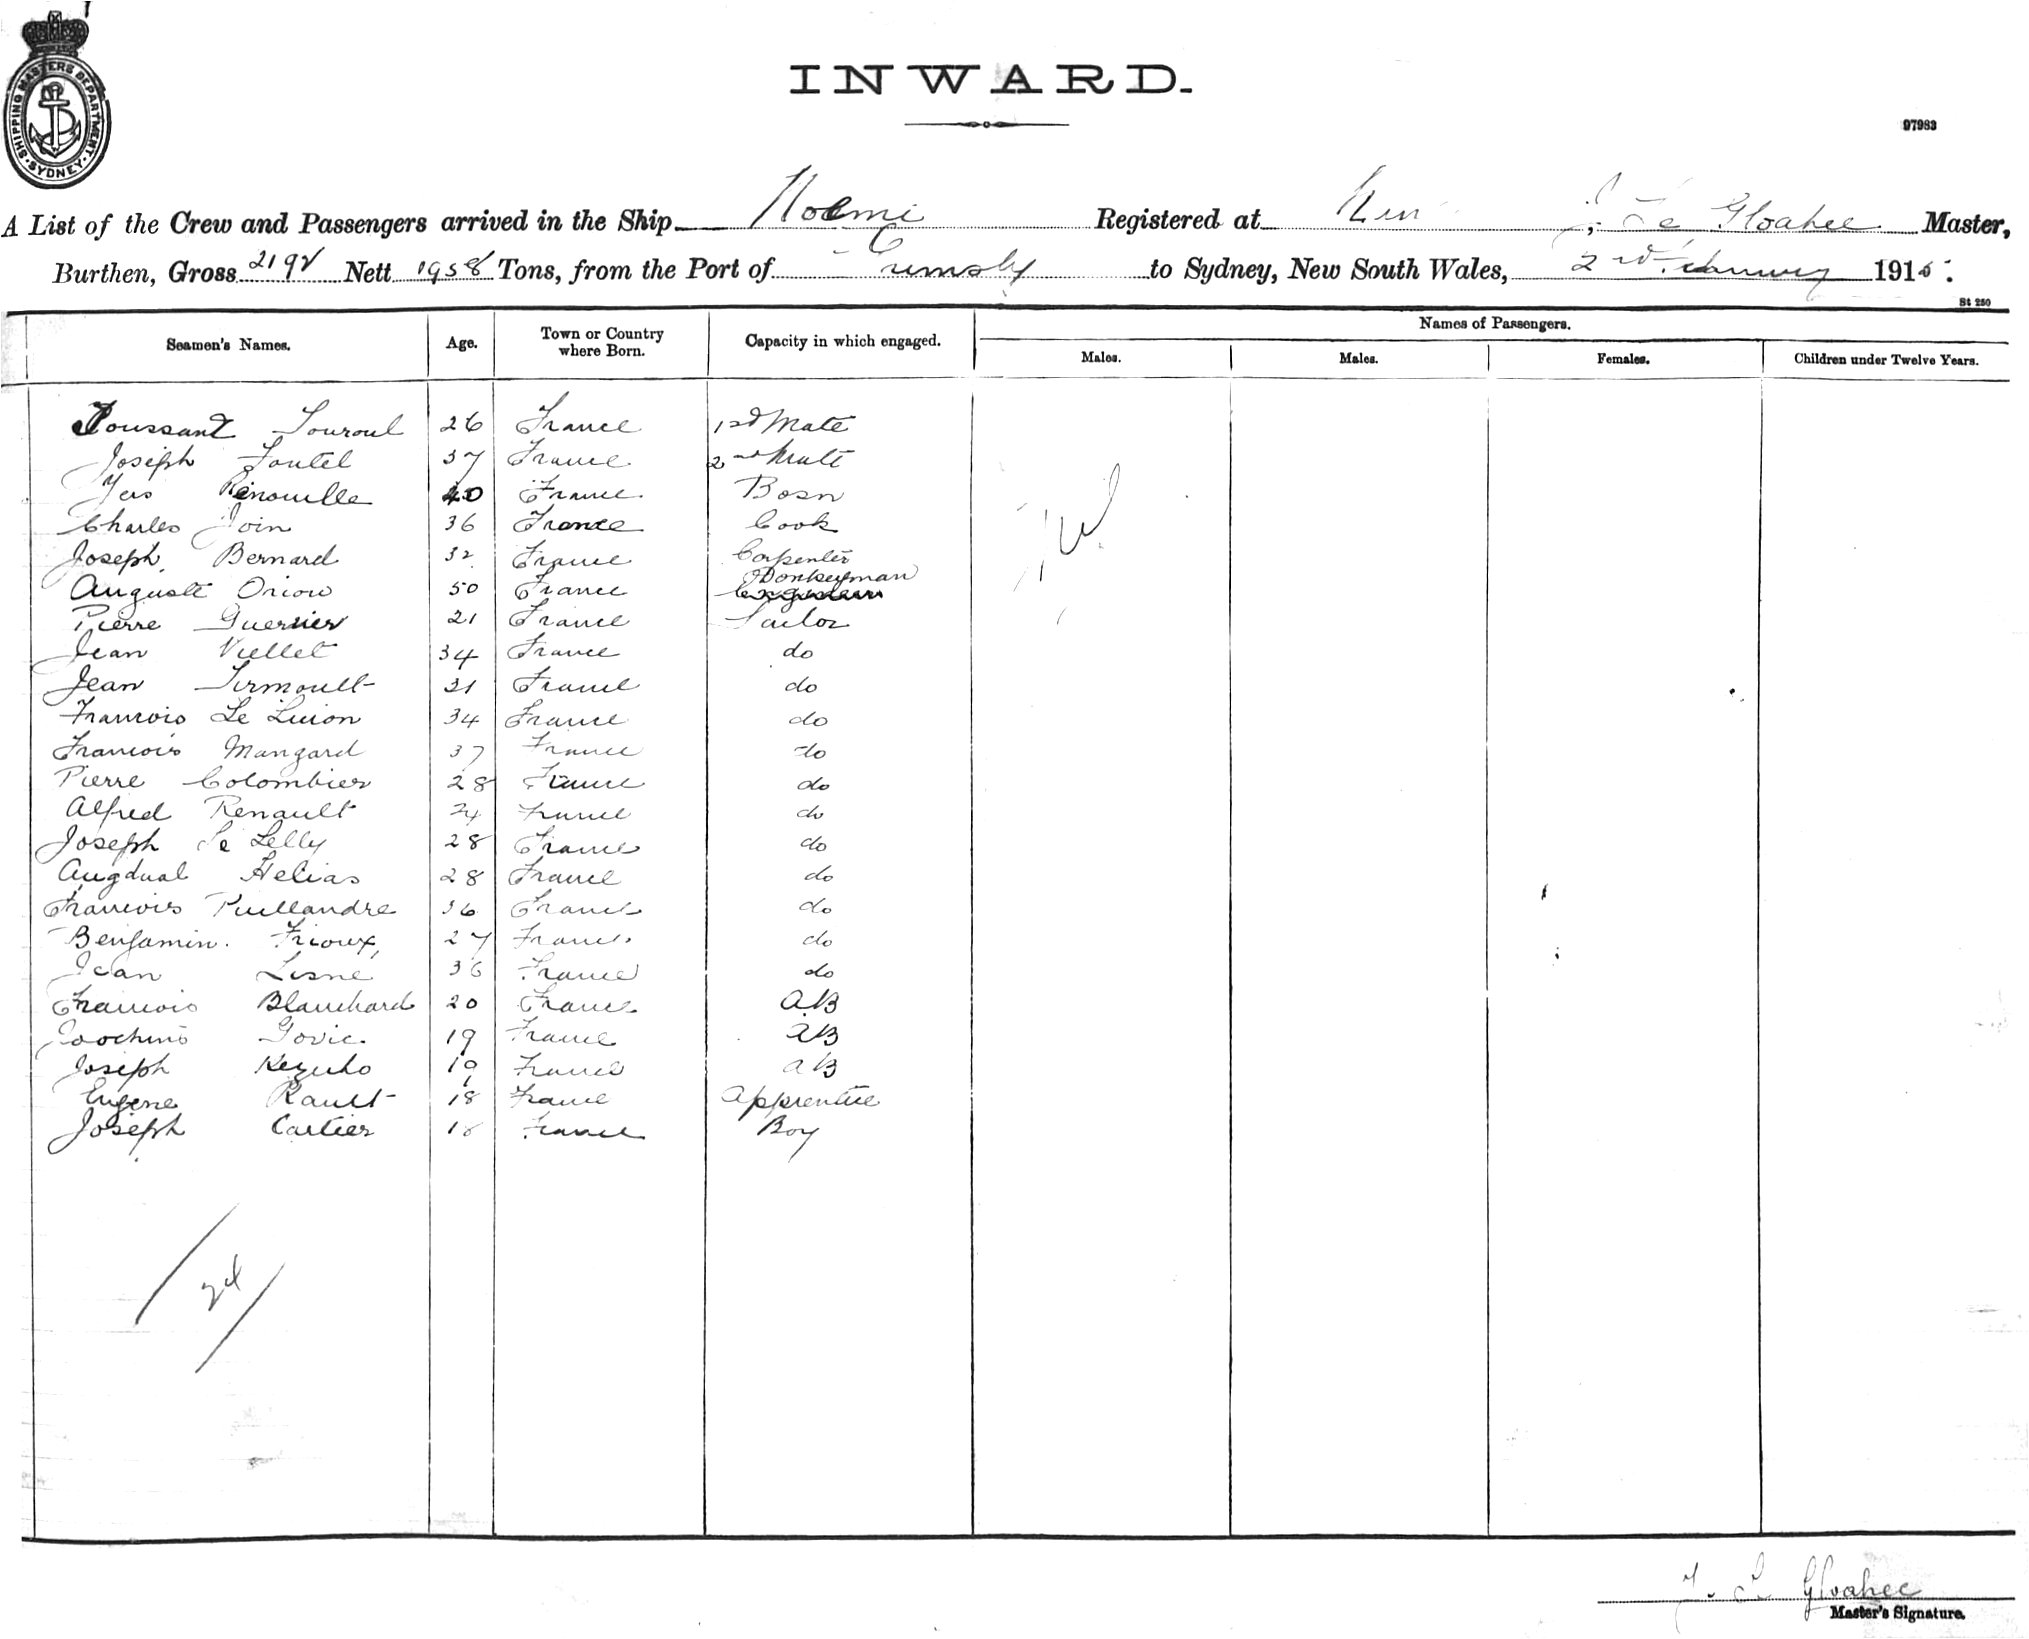 SHIPPING MASTERS DEPARTMENT. SYDNEY
INWARD.
97983
A List of the Crew and Passengers arrived in the Ship Noemi Registered at Le Gloahec Master,
Burthen, Gross 2192 Nett 1958 Tons, from the Port of Grimsby to Sydney, New South Wales, 2nd January 1915.
St 250
Seamen's Names. Age. Town or Country where Born. Capacity in which engaged. Names of Passengers.
Males. Males. Females. Children under Twelve Years.
Toussant Touroul 26 France 1st Mate
Joseph Fontel 37 France 2nd Mate
Yves Renouille 40 France Bosn
Charles Join 36 France Cook
Joseph Bernard 32 France Carpenter
Auguste Oriow 50 France Donkeyman
Pierre Guernier 21 France Sailor
Jean Viellet 34 France do
Jean Tirmoult 31 France do
Francois Le Luion 34 France do
Francois Mangard 37 France do
Pierre Colombier 28 France do
Alfred Renault 24 France do
Joseph Le Lelly 28 France do
Augdual Helias 28 France do
Francois Puillandre 36 France do
Benjamin Frioux 27 France do
Jean Lisne 36 France do
Francois Blanchard 20 France AB
Govic 19 France AB
Joseph 19 France AB
Eugene Rault 18 France Apprentice
Joseph Cartier 18 France Boy
24
Le Gloahec
Master's Signature.